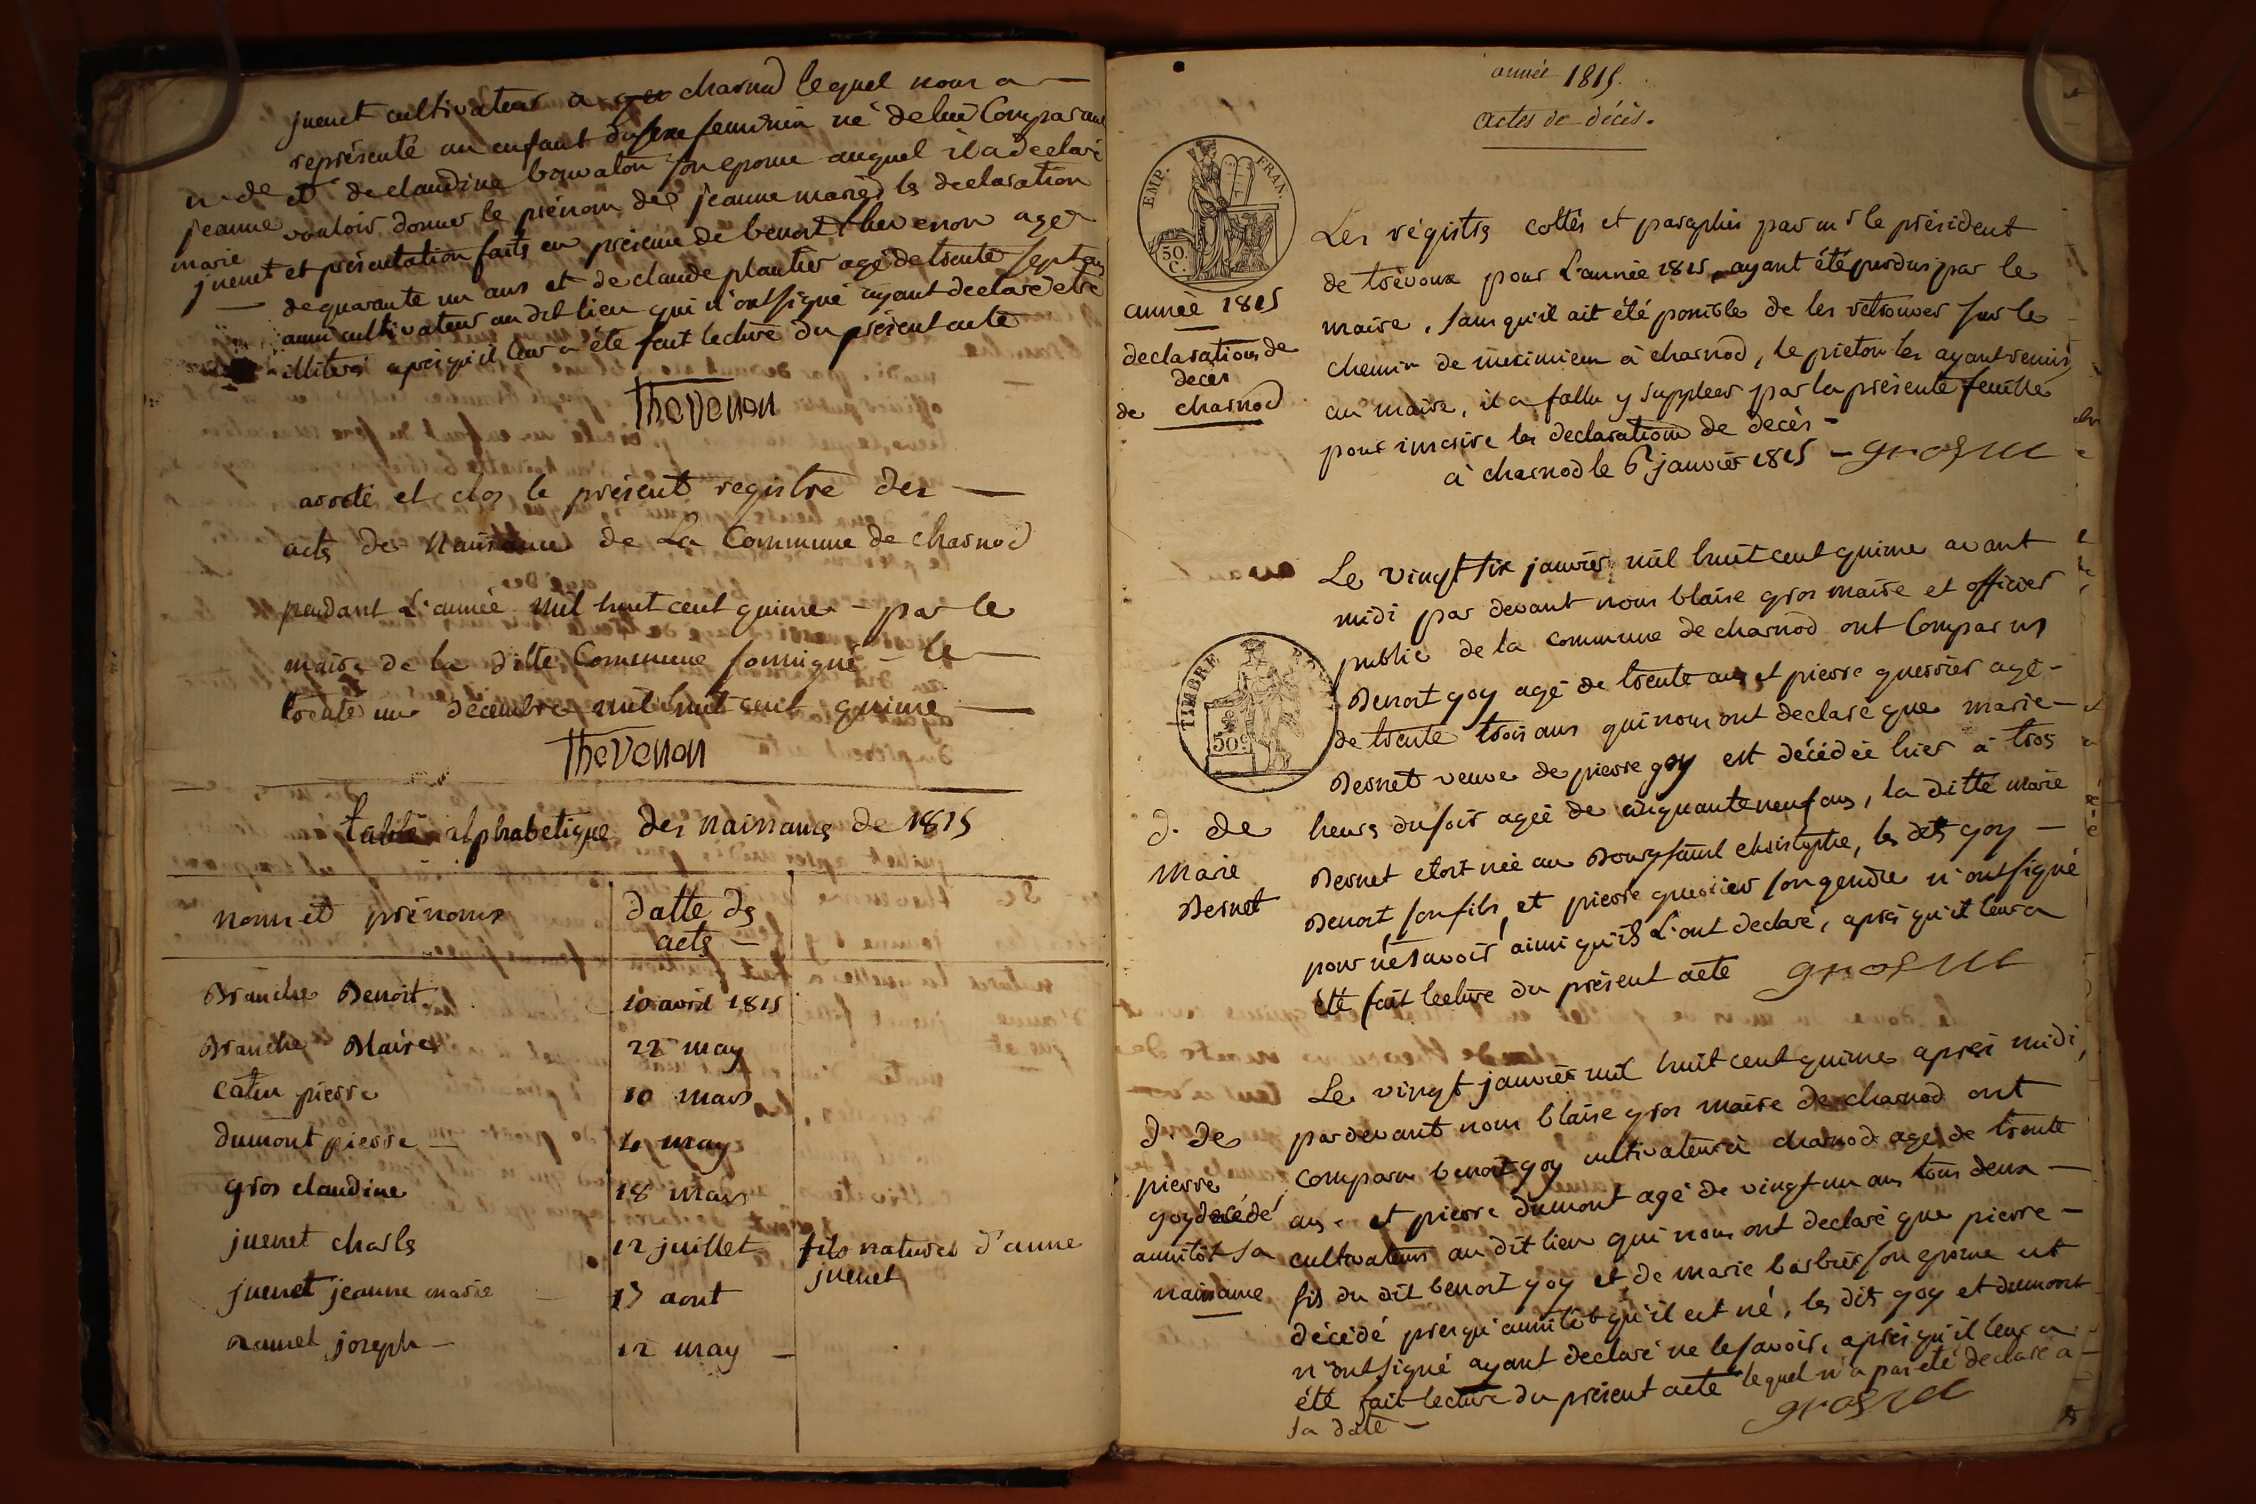 juenet cultivateur a charnod lequel nous a
représenté un enfant du sexe feminin né de lui Comparant
et de claudine bouvaton son epouse auquel il a declaré
vouloir donner le prénom de jeanne marie ls declaration
et présentation faits en présence de benoit thevenon agé
de quarante un ans et de claude plantier agé de trente sept ans
aussi cultivateurs au dit lieu qui n'ont signé ayant declaré etre
illiterés après qu'il leur a été fait lecture du présent acte
n de
jeanne
marie
juenet
Thevenon
arrêté et clos le présent registre des
acts de Naissance de La Commune de charnod
pendant L'année mil huit cent quinze - par le
maire de la ditte Commune soussigné - le
trente un decembre mil huit cent quinze
Thevenon
table alphabetique des naissancs de 1815
noms et prénoms
datte ds
acts -
Branche Benoit 10 avril 1815
Branche Blaise 22 may
Catin pierre 10 mars
dumont pierre 10 may
gros claudine 18 mars
juenet charls 12 juillet fils naturel d'anne
juenet
juenet jeanne marie 13 aout
ramel joseph 12 may
année 1815.
actes de décès.
EMP. FRAN.
50.
C.
année 1815
declarations de
décès
de charnod
Les régistrs cottés et paraphés par mr le président
de trévoux pour L'année 1815, ayant été perdus par le
maire, sans qu'il ait été possible de les retrouver sur le
chemin de meximieux à charnod, le piéton les ayant remis
au maire, il a fallu y suppléer par la présente feuille
pour inscrire les declarations de décès -
à charnod le 6 janvier 1815 - gros me
Le vingt six janvier mil huit cent quinze avant
midi par devant nous blaise gros maire et officier
public de la commune de charnod ont Comparus
Benoit goy agé de trente ans et pierre guerrier agé
de trente trois ans qui nous ont declaré que marie
Bernet veuve de pierre goy est décédée hier à trois
heurs du soir agée de cinquante neuf ans, la ditte marie
Bernet etoit née au Bourg saint christophe, ls dts goy
Benoit son fils, et pierre guerrier son gendre n'ont signé
pour ne savoir ainsi qu'ils L'ont declaré, après qu'il leur a
été fait lecture du présent acte gros me
TIMBRE
50c
d. de
Marie
Bernet
Le vingt janvier mil huit cent quinze après midi,
pardevant nous blaise gros maire de charnod ont
comparu benoit goy cultivateur à charnod agé de trente
ans et pierre dumont agé de vingt un ans tous deux
cultivateurs au dit lieu qui nous ont declaré que pierre
fils du dit benoit goy et de marie barbier son epouse est
décédé presqu'aussitôt qu'il est né, ls dits goy et dumont
n'ont signé ayant declaré ne le savoir, après qu'il leur a
été fait lecture du présent acte lequel n'a pas été declaré a
sa date -
gros me
d. de
pierre
goy décédé
aussitôt sa
naissance